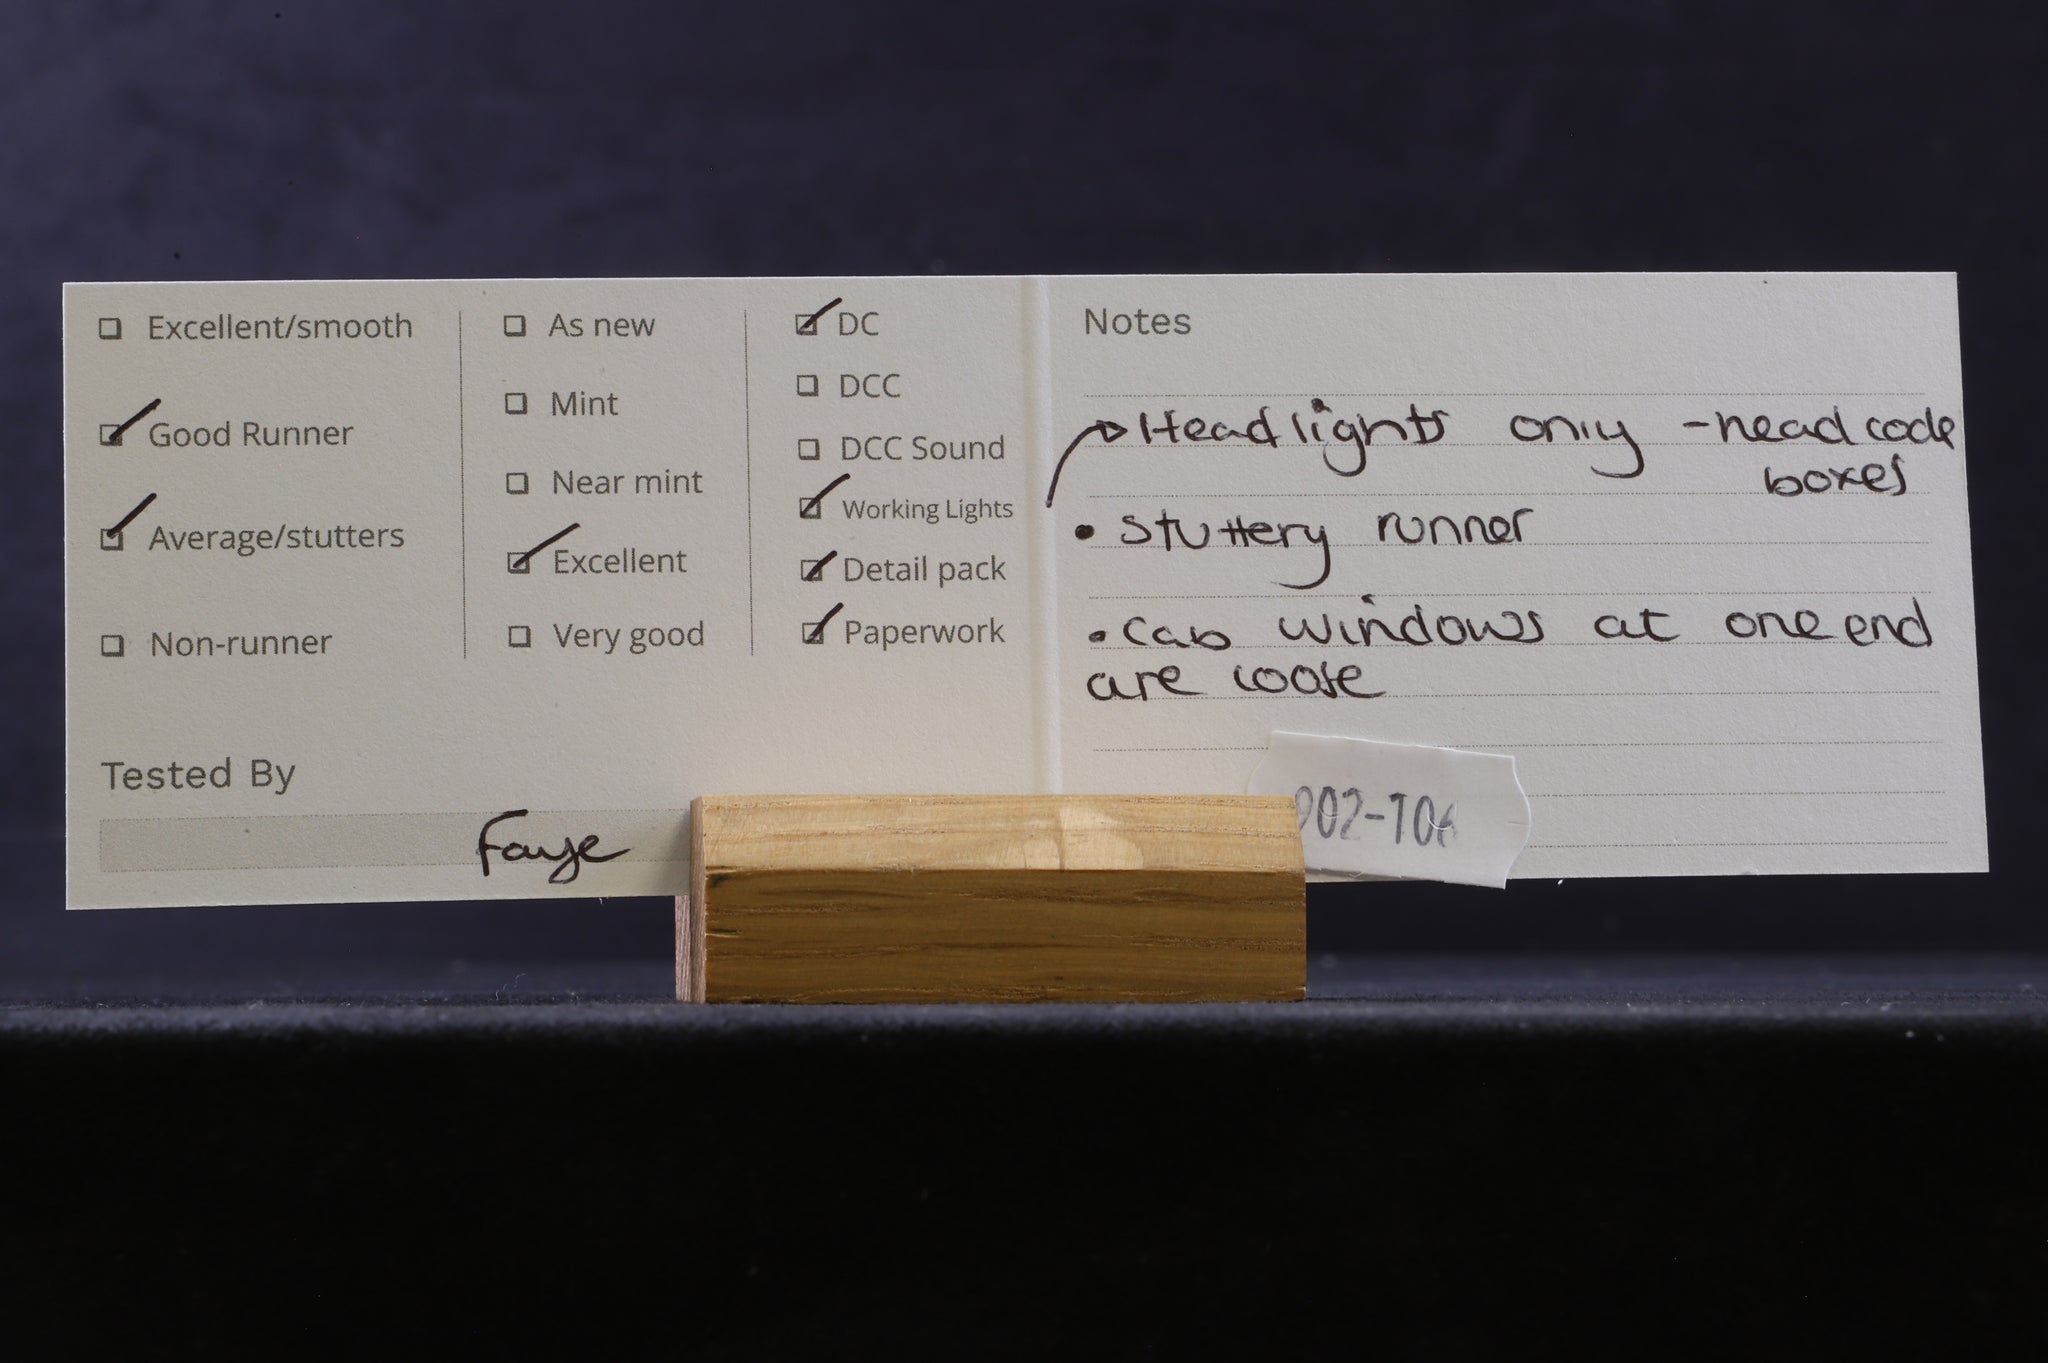 Excellent/smooth
Good Runner
Average/stutters
Non-runner
As new
Mint
Near mint
Excellent
Very good
DC
DCC
DCC Sound
Working Lights
Detail pack
Paperwork
Tested By
Faye
Notes
Headlights only - headcode
boxes
• Stuttery runner
• Cab windows at one end
are loose